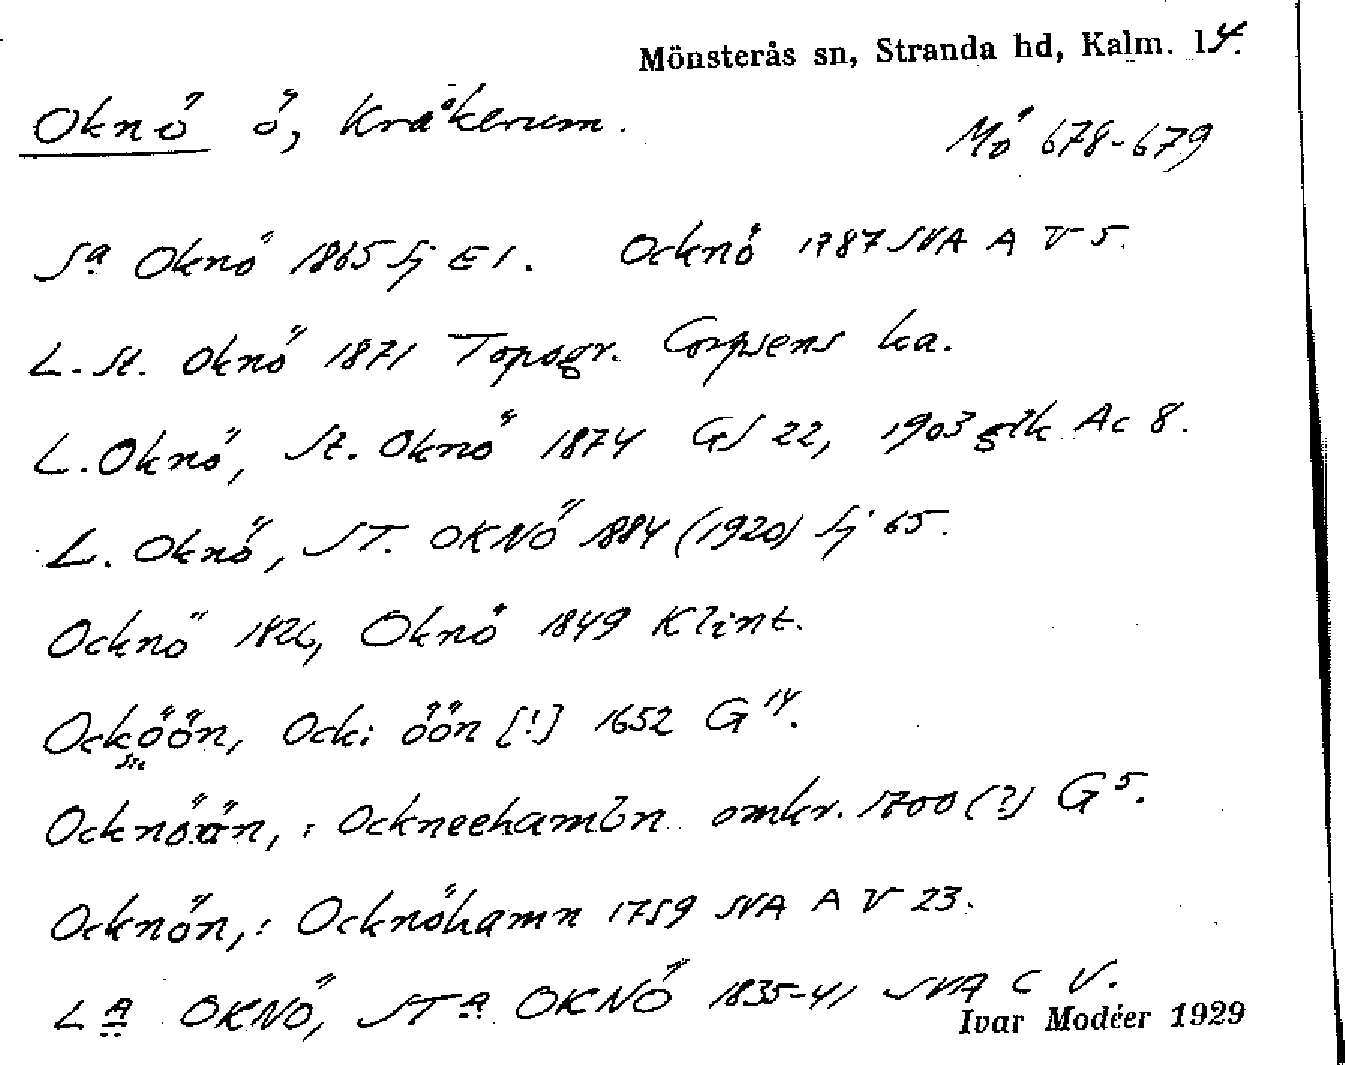 Mönsterås sn, Stranda hd, Kalm. l 4.
Oknö ö, Kråkerum.
Mö 678-679
Sa Oknö 1865 Sj E 1. Ocknö 1787 SVA A V 5.
L. St. Oknö 1871 Topogr. Corpsens ka.
L. Oknö, St. Oknö 1874 GS 22, 1903 gtk Ac 8.
L. Oknö, ST. OKNÖ 1884 (1920) Sj 65.
Ocknö 1826, Oknö 1849 Klint.
Ocköön, Ock: öön [!] 1652 G 14.
Ocknöön, : Ockneehambn omkr. 1700 (?) G 5.
Ocknön, : Ocknöhamn 1759 SVA A V 23.
LA OKNÖ, STA OKNÖ 1835-41 SVA C V.
Ivar Modéer 1929